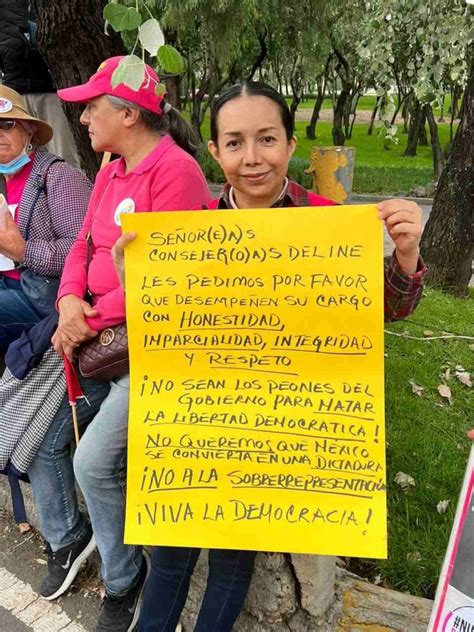 SEÑOR(E)(A)S
CONSEJER(O)AS DEL INE
LES PEDIMOS POR FAVOR
QUE DESEMPEÑEN SU CARGO
CON HONESTIDAD,
IMPARCIALIDAD, INTEGRIDAD
Y RESPETO
¡NO SEAN LOS PEONES DEL
GOBIERNO PARA MATAR
LA LIBERTAD DEMOCRATICA!
NO QUEREMOS QUE MÉXICO
SE CONVIERTA EN UNA DICTADURA
¡NO A LA SOBRERREPRESENTACIÓN
¡VIVA LA DEMOCRACIA!